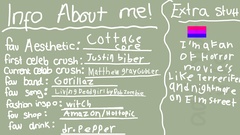 Info About me!
fav Aesthetic: Cottage core
first celeb crush: Justin biber
Current celeb crush: Matthew gray Gubler
fav band: Gorillaz
fav song: Living Dead girl by Rob Zombie
fashion inspo: witch
fav shop: Amazon/Hottopic
fav drink: dr.Pepper
Extra stuff
I'm a fan
of Horror
movie's
Like Terrerifer
and nightmare
on Elm street